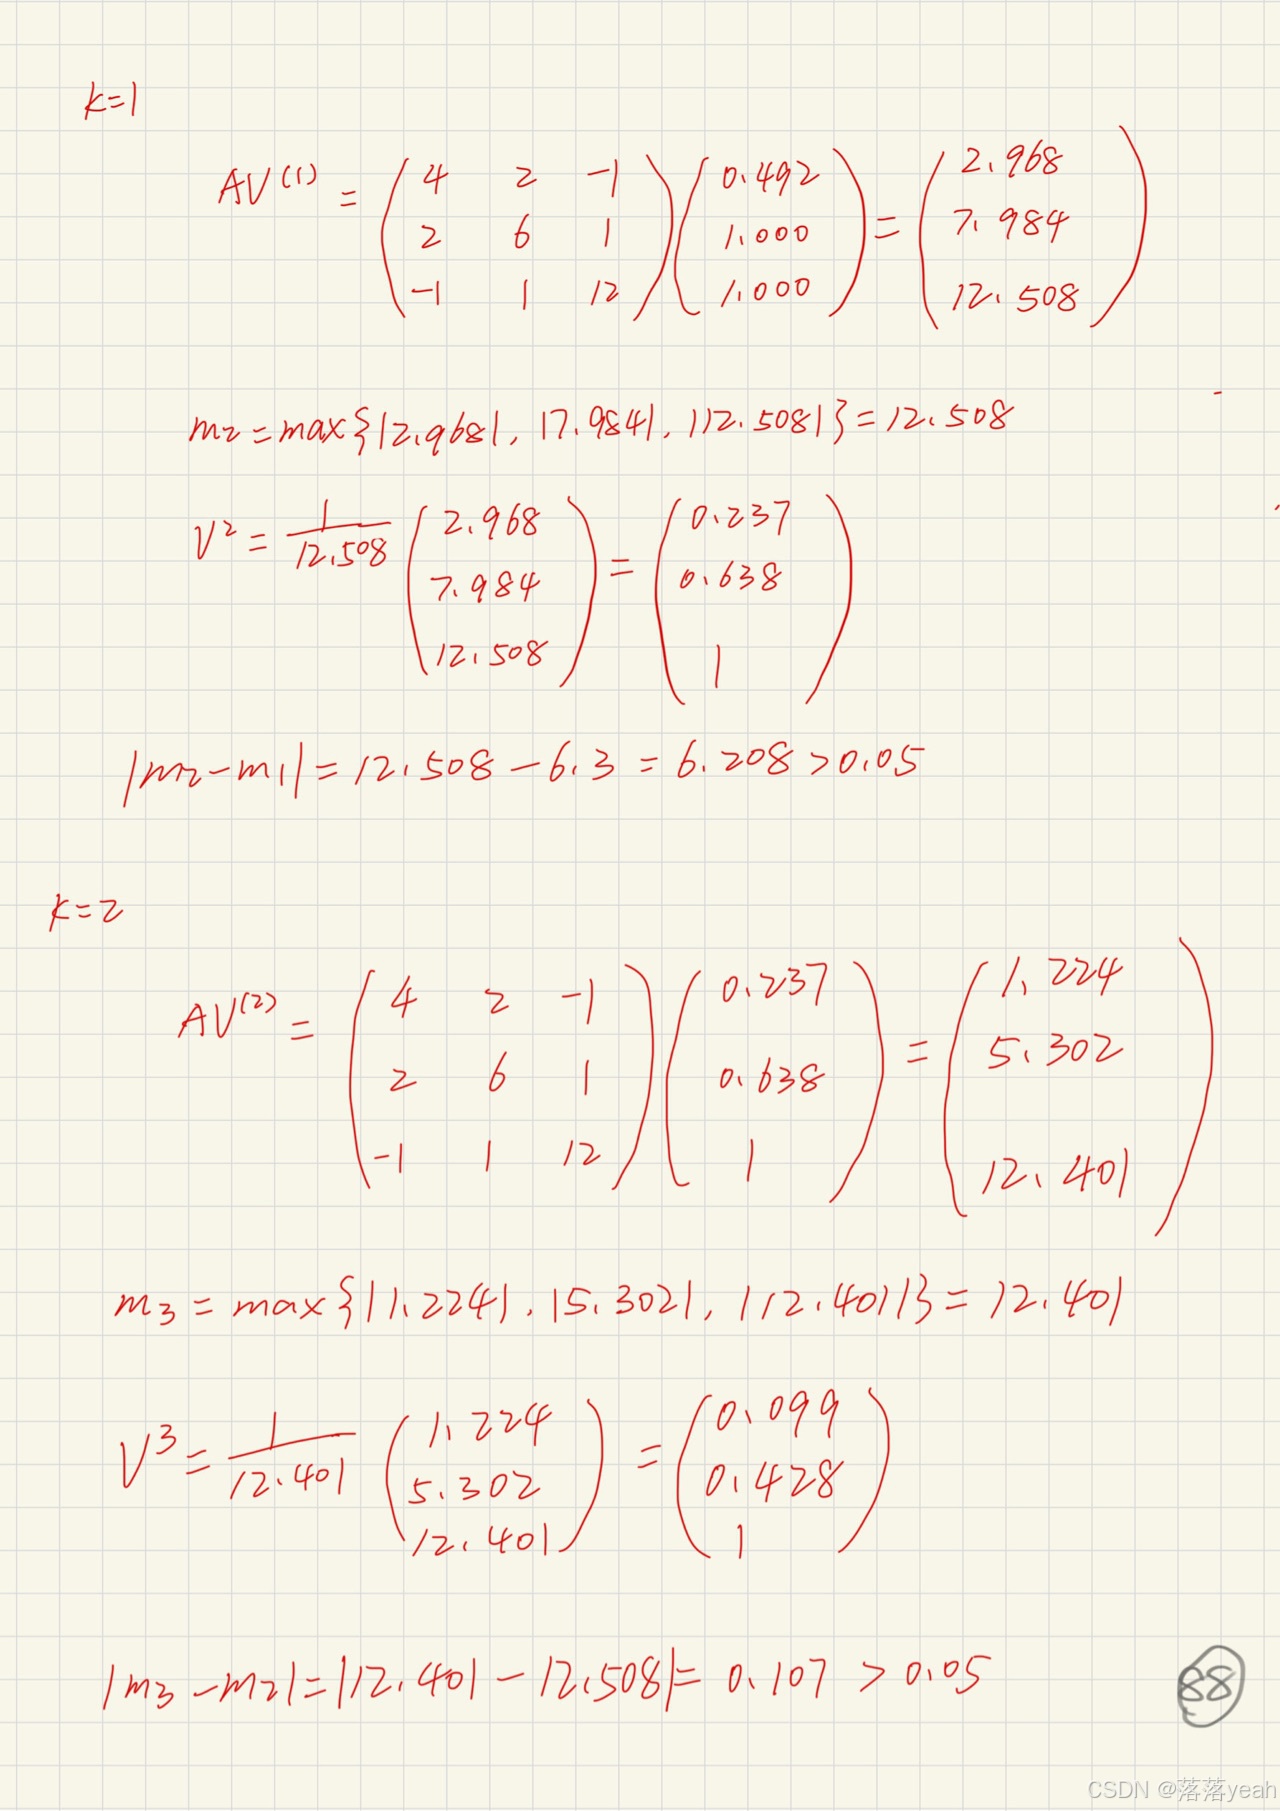 k=1
AV⁽¹⁾ = (4 2 -1; 2 6 1; -1 1 12)(0.492; 1.000; 1.000) = (2.968; 7.984; 12.508)
m₂ = max{|2.968|, |7.984|, |12.508|} = 12.508
V² = 1/12.508 (2.968; 7.984; 12.508) = (0.237; 0.638; 1)
|m₂-m₁| = 12.508-6.3 = 6.208 > 0.05
k=2
AV⁽²⁾ = (4 2 -1; 2 6 1; -1 1 12)(0.237; 0.638; 1) = (1.224; 5.302; 12.401)
m₃ = max{|1.224|, |5.302|, |12.401|} = 12.401
V³ = 1/12.401 (1.224; 5.302; 12.401) = (0.099; 0.428; 1)
|m₃-m₂| = |12.401-12.508| = 0.107 > 0.05
88
CSDN @落落yeah